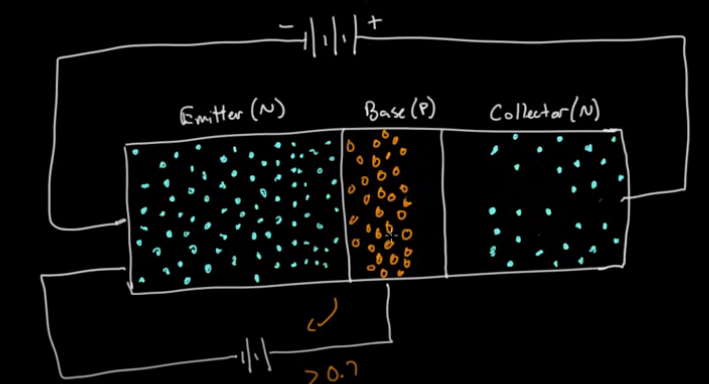 - +
Emitter (N) Base (P) Collector (N)
> 0.7